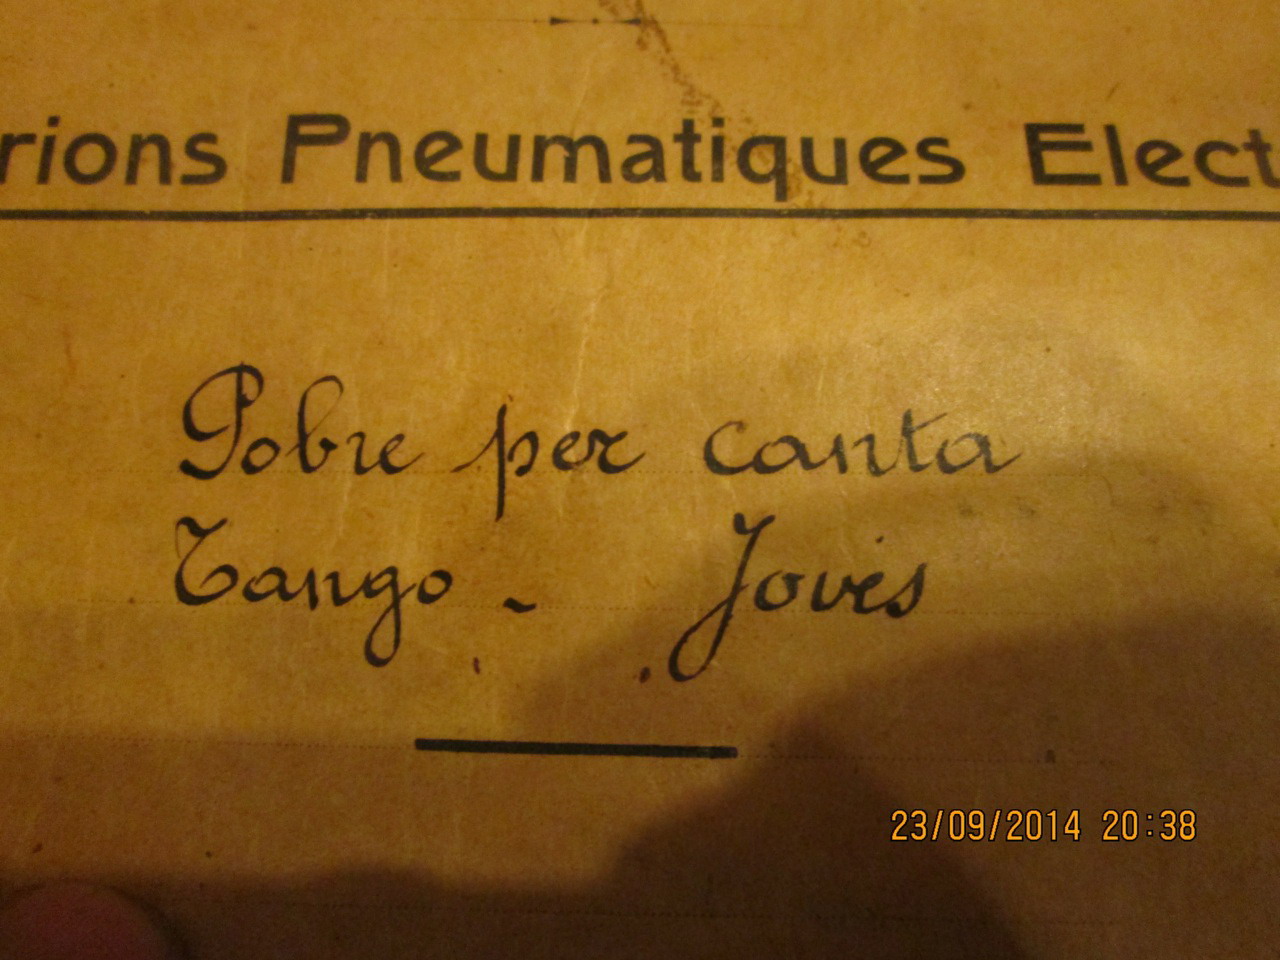 rions Pneumatiques Elect
Pobre per canta
Tango - Jovés
23/09/2014 20:38